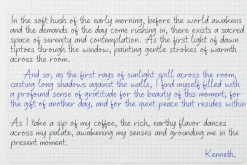 In the soft hush of the early morning, before the world awakens
and the demands of the day come rushing in, there exists a sacred
space of serenity and contemplation. As the first light of dawn
tiptoes through the window, painting gentle strokes of warmth
across the room.
And so, as the first rays of sunlight spill across the room,
casting long shadows against the walls, I find myself filled with
a profound sense of gratitude for the beauty of this moment, for
the gift of another day, and for the quiet peace that resides within
As I take a sip of my coffee, the rich, earthy flavor dances
across my palate, awakening my senses and grounding me in the
present moment.
Kenneth.